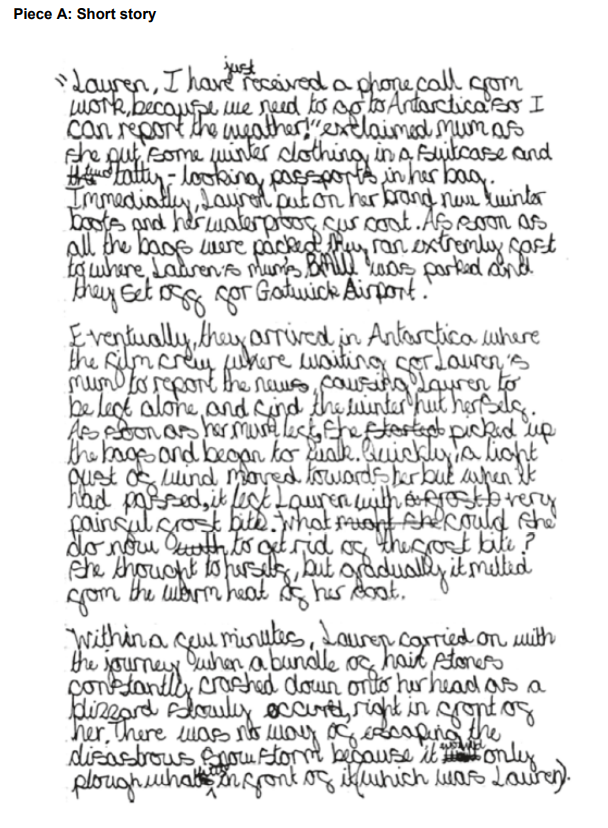 Piece A: Short story
"Lauren, I have just received a phone call from
work, because we need to go to Antarctica so I
can report the weather!" exclaimed Mum as
she put some winter clothing in a suitcase and
tatty-looking passports in her bag.
Immediatly, Lauren put on her brand new winter
boots and her waterproof fur coat. As soon as
all the bags were packed, they ran extremly fast
to where Lauren's mum's BMW was parked and
they set off for Gatwick Airport.
Eventually, they arrived in Antarctica where
the film crew where waiting for Lauren's
mum to report the news, causing Lauren to
be left alone, and find the winter hut herself.
As soon as her mum left, she started picked up
the bags and began to walk. Quickly, a light
gust of wind moved towards her but when it
had passed, it left Lauren with a frost b very
painful frost bite. What might she could she
do now to get rid of the frost bite?
She thought to herself, but gradually it melted
from the warm heat of her coat.
Within a few minutes, Lauren carried on with
the journey when a bundle of hail stones
constantly crashed down onto her head as a
blizzard slowly occured, right in front of
her. There was no way of escaping the
disastrous snowstorm because it would only
plough what's in front of it (which was Lauren).